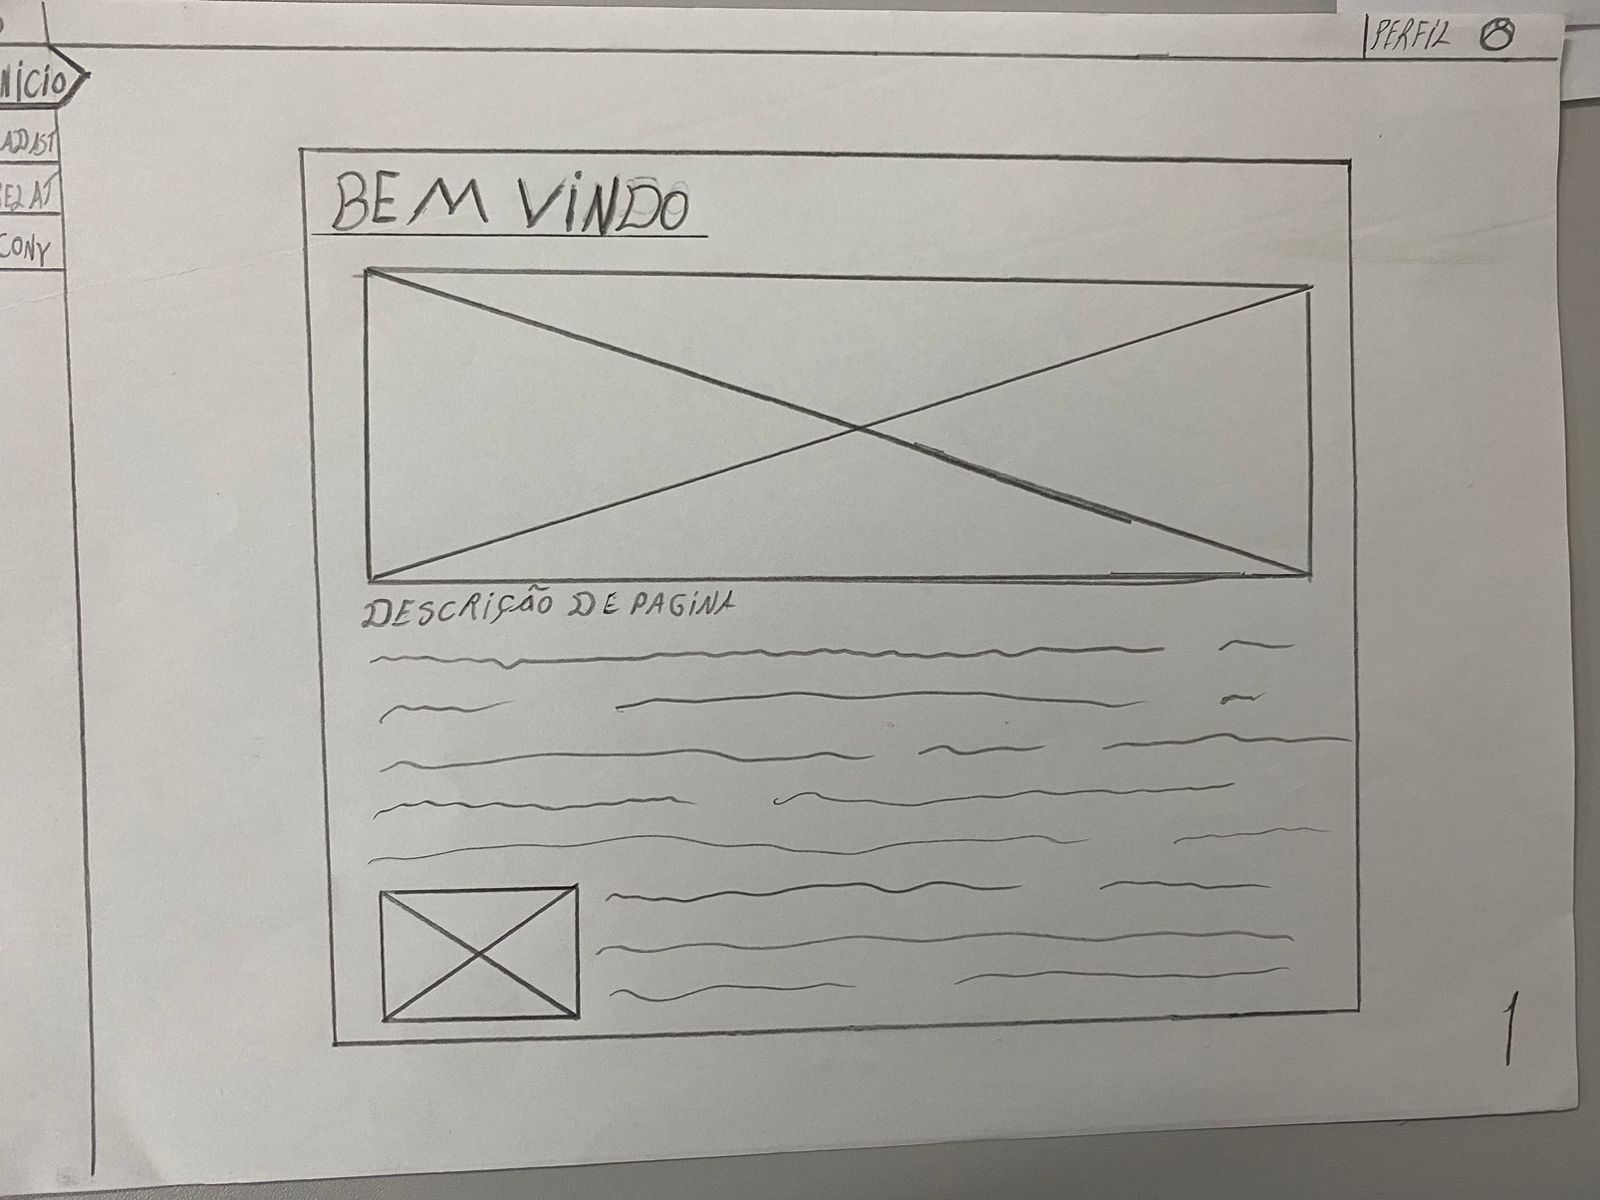 PERFIL
NICIO
ADAST
RELAT
CONV
BEM VINDO
DESCRIÇÃO DE PAGINA
1